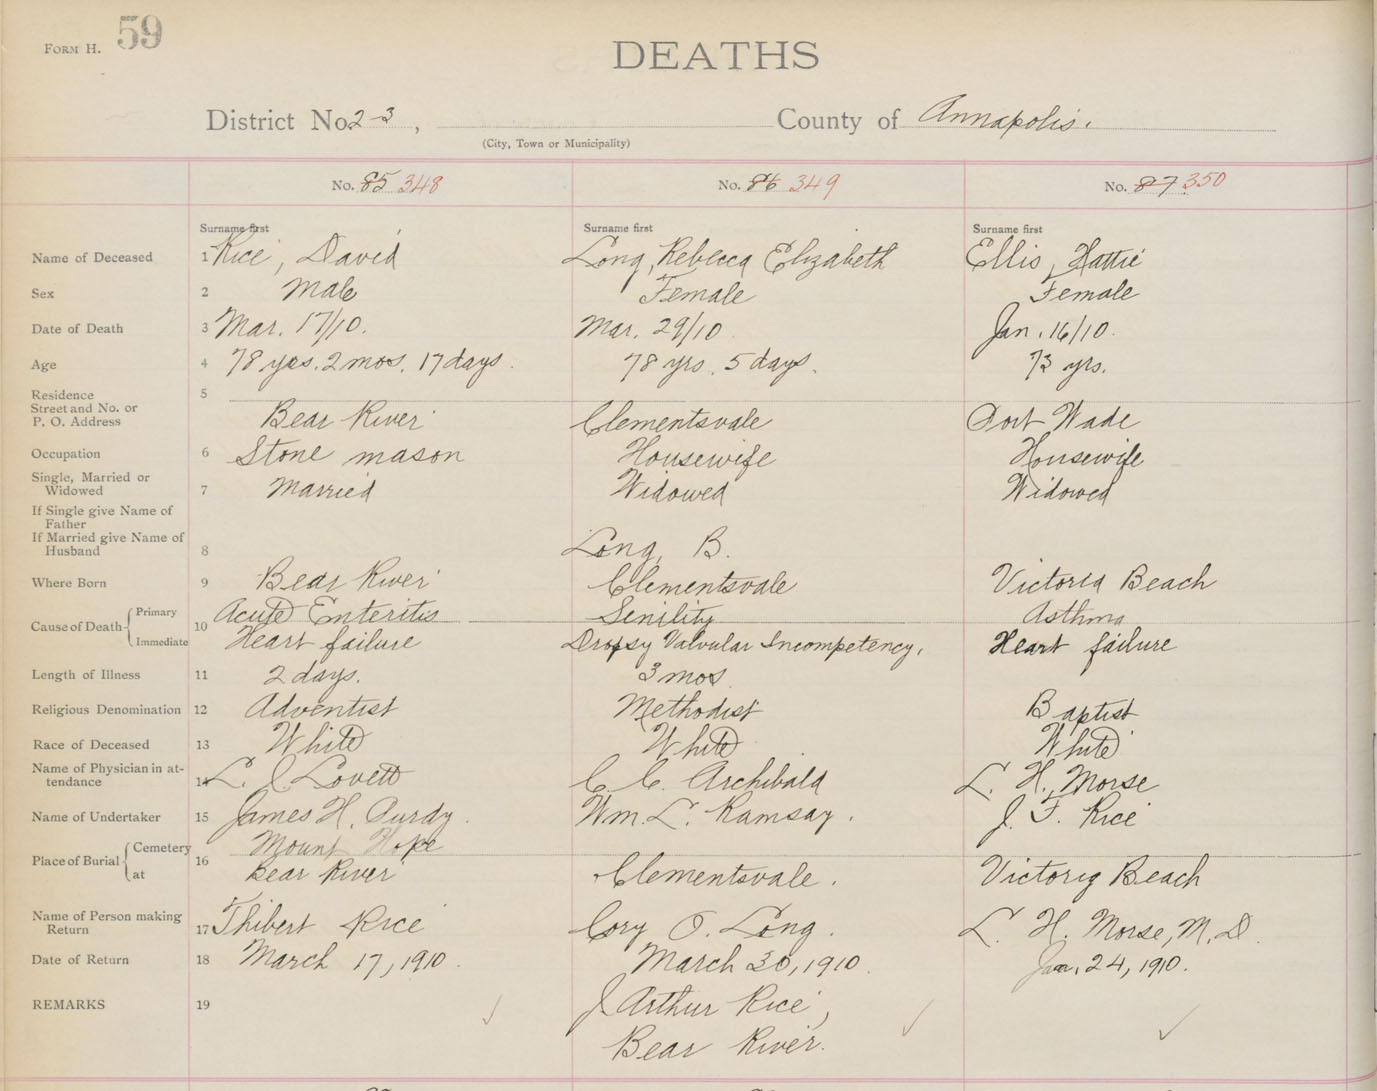 FORM H. 59
DEATHS
District No. 2-3, County of Annapolis.
(City, Town or Municipality)
No. 85 348 No. 86 349 No. 87 350
Surname first Surname first Surname first
Name of Deceased 1 Rice, David Long, Rebecca Elizabeth Ellis, Hattie
Sex 2 Male Female Female
Date of Death 3 Mar. 17/10. Mar. 29/10 Jan. 16/10.
Age 4 78 yrs. 2 mos. 17 days. 78 yrs. 5 days. 73 yrs.
Residence 5
Street and No. or
P. O. Address Bear River Clementsvale Port Wade
Occupation 6 Stone mason Housewife Housewife
Single, Married or
Widowed 7 Married Widowed Widowed
If Single give Name of
Father
If Married give Name of
Husband 8 Long, B.
Where Born 9 Bear River Clementsvale Victoria Beach
Cause of Death 10 Primary Acute Enteritis Senility Asthma
Immediate Heart failure Dropsy Valvular Incompetency, Heart failure
Length of Illness 11 2 days. 3 mos.
Religious Denomination 12 Adventist Methodist Baptist
Race of Deceased 13 White White White
Name of Physician in at-
tendance 14 L. J. Lovett C. C. Archibald L. H. Morse
Name of Undertaker 15 James H. Purdy. Wm. L. Ramsay. J. F. Rice
Place of Burial 16 Cemetery Mount Hope
at Bear River Clementsvale. Victoria Beach
Name of Person making
Return 17 Thibert Rice Cory O. Long. L. H. Morse, M.D.
Date of Return 18 March 17, 1910. March 30, 1910. Jan. 24, 1910.
REMARKS 19 J. Arthur Rice,
Bear River.